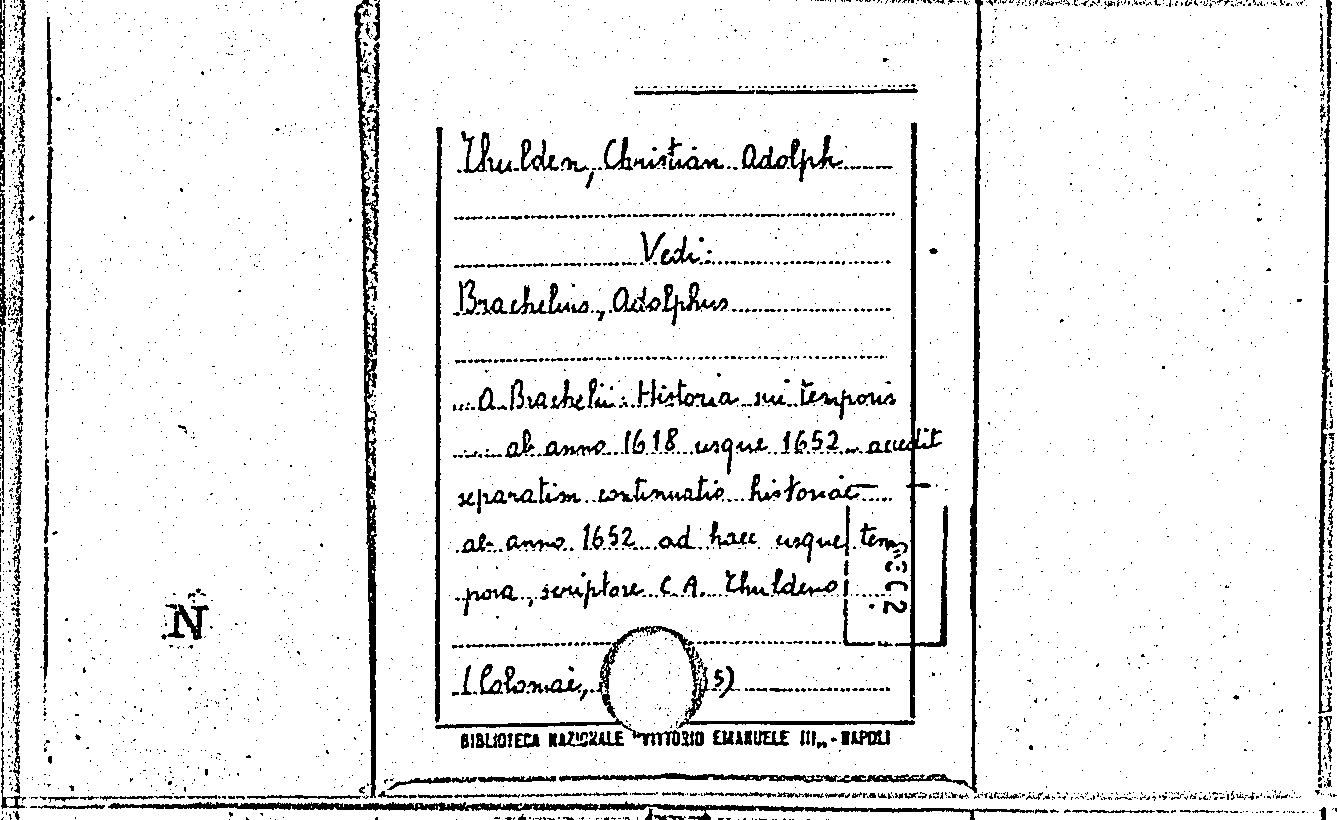 Thulden, Christian Adolph
Vedi:
Brachelius, Adolphus
... A. Brachelii. Historia sui temporis
.... ab anno 1618 usque 1652... accedit
separatim continuatio historiae
ab anno 1652 ad haec usque tem
pora, scriptore C. A. Thuldeno
(Coloniae, s)
N
BIBLIOTECA NAZIONALE "VITTORIO EMANUELE III„ - NAPOLI